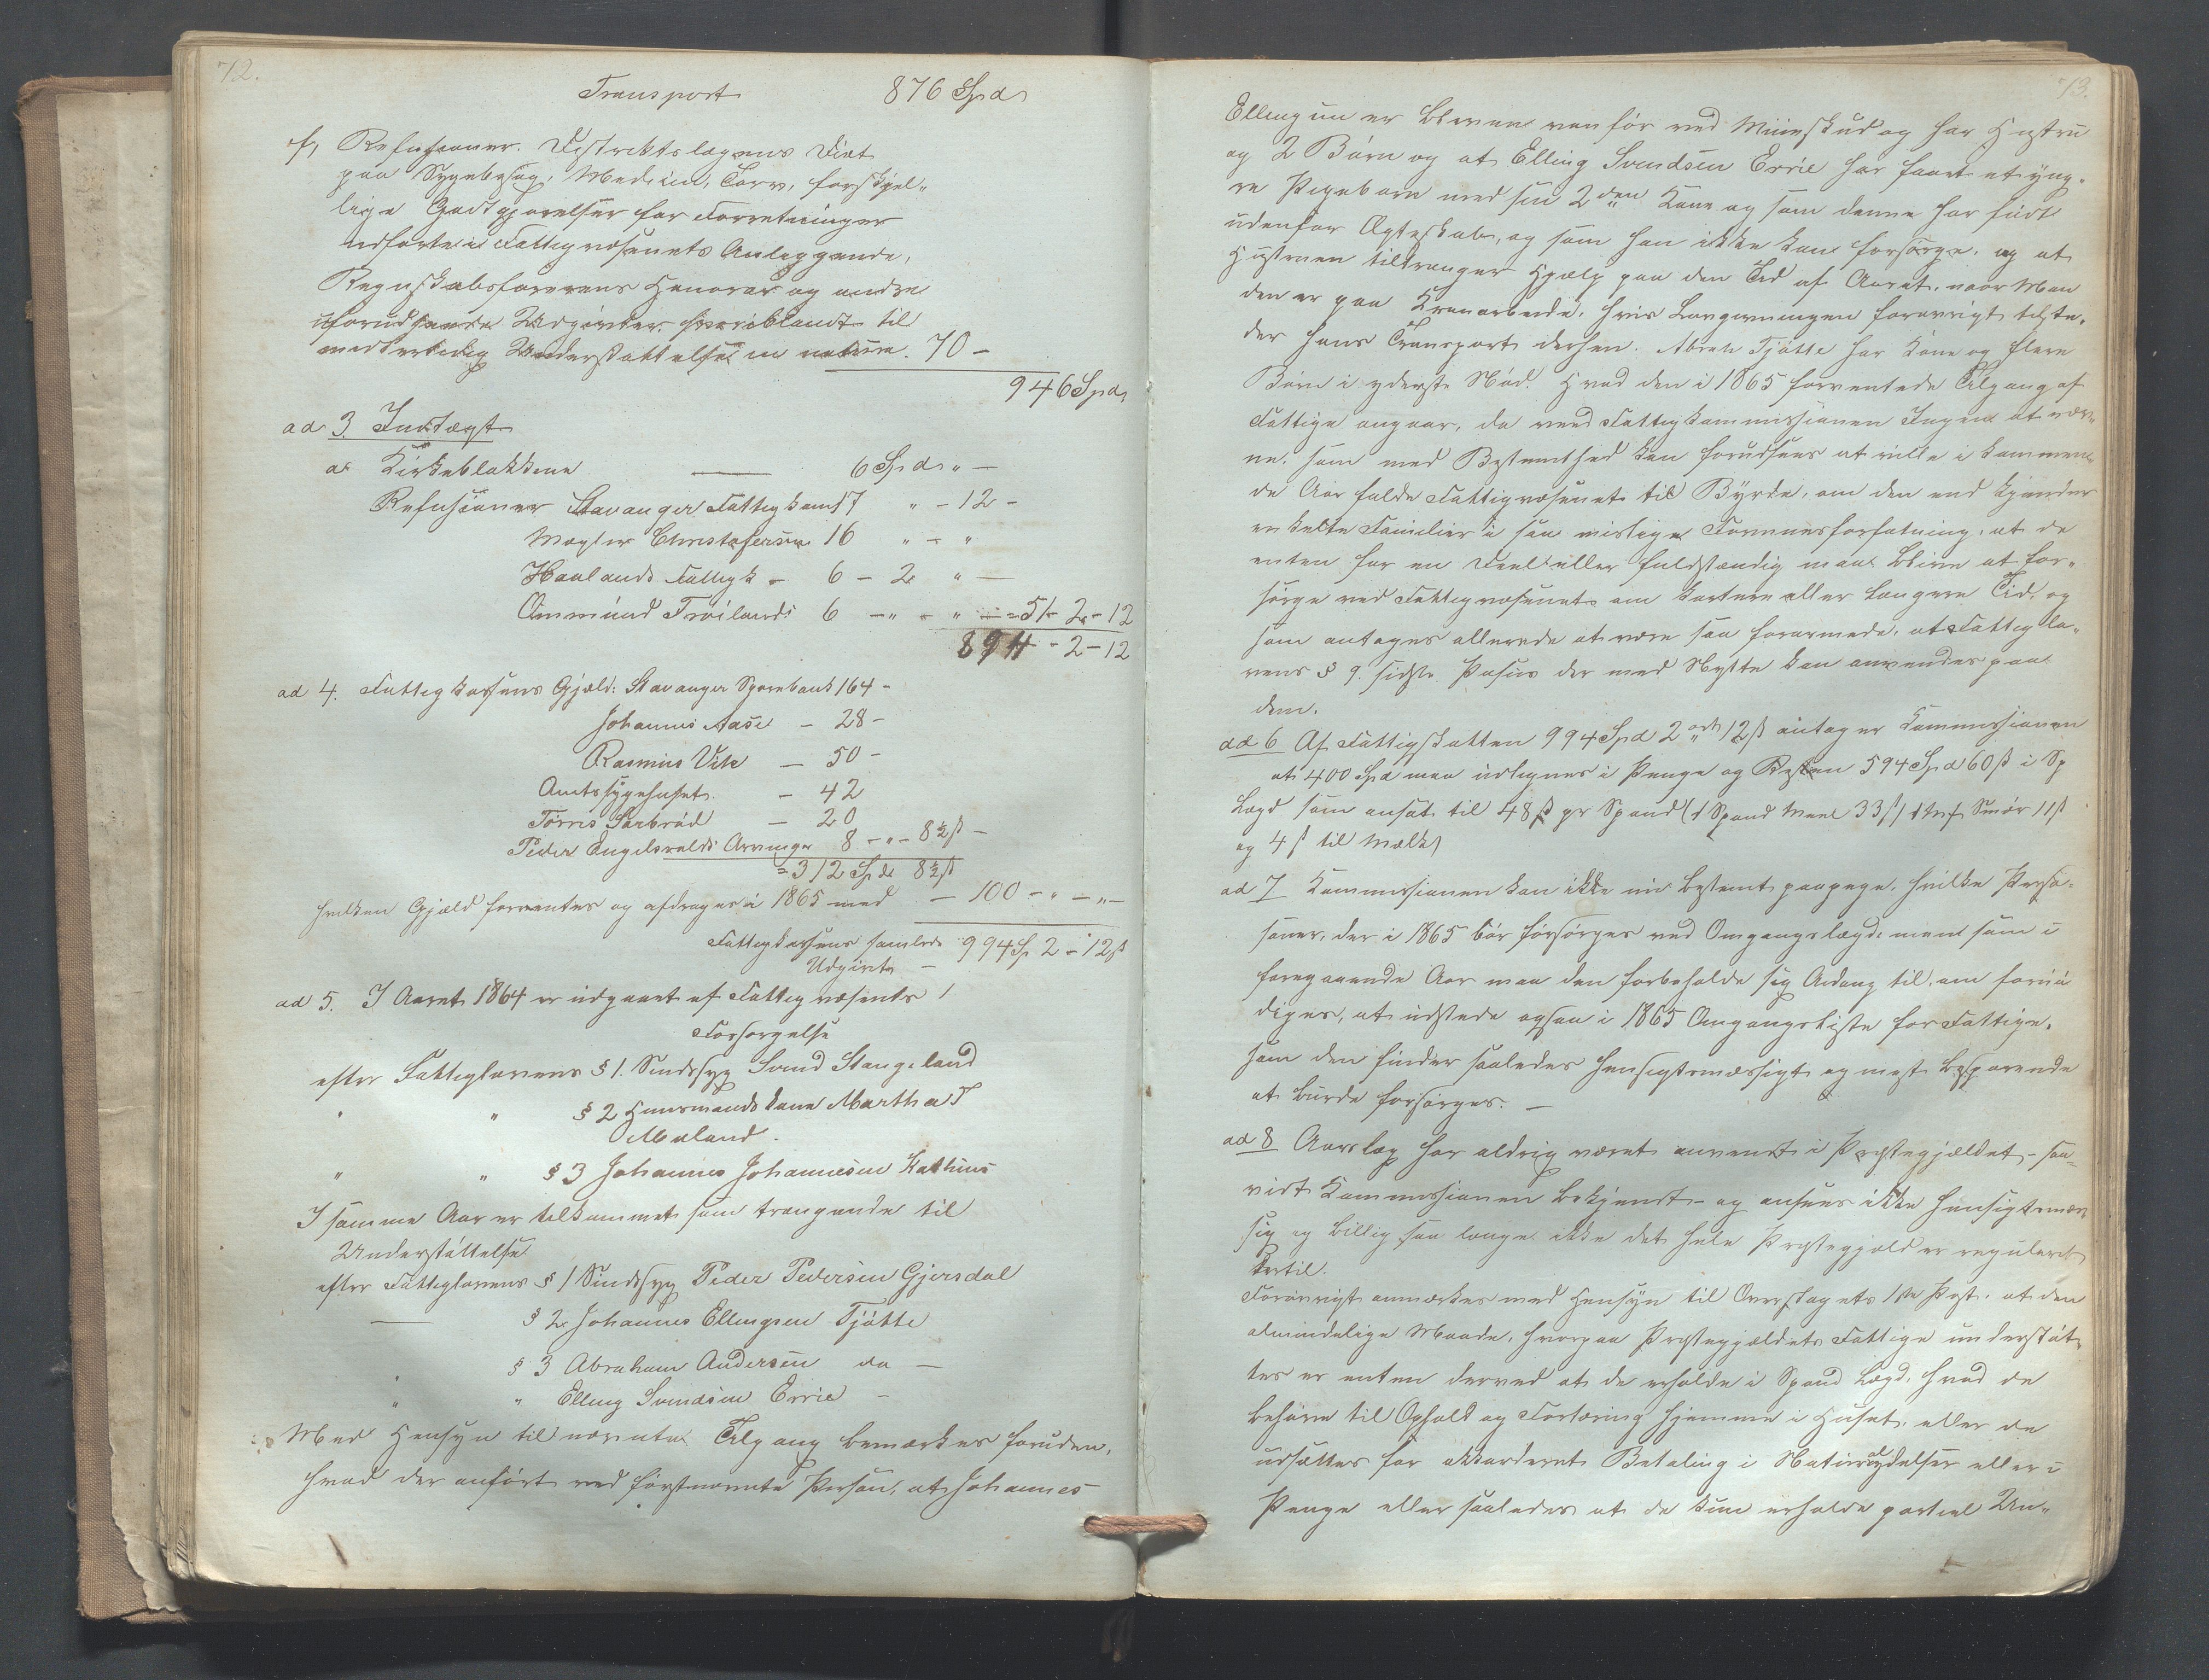 72.
Transport 876 Spd
f, Refusioner. Distriktslægens Diæt
paa Sygebesøg, Medicin, Tarv, forskjel„
lige Godtgjørelser for Forretninger
udførte i Fattigvæsenets Anliggende,
Regnskabsførerens Honorar og andre
uforudseede Udgivter hvoriblandt til
midlertidig Understøttelse in natura. 70 –
946 Spd
ad 3. Indtægt
a Kirkeblokkene — 6 Spd „ —
Refusioner Stavanger Fattigkom 17 „ – 12 –
Mægler Christofersen 16 „ – „
Haalands Fattigk – 6 – 2 „ —
Ommund Træilands 6 – „ – „ — = 51 – 2 – 12
894 – 2 – 12
ad 4. Fattigkassens Gjæld: Stavanger Sparebank 164 –
Johannes Aase – 28 –
Rasmus Vik – 50 –
Amtssygehuset – 42
Tørres Sørbrød – 20
Peder Engelsvolds Arvinger 8 – „ – 8½ ß –
= 312 Spd 8½ ß
hvilken Gjæld forrentes og afdrages i 1865 med – 100 – „ – „ –
Fattigkassens samlede 994 Sp 2 – 12 ß
Udgivt –
ad 5. I Aaret 1864 er udgaaet af Fattigvæsenets
Forsørgelse
efter Fattiglovens § 1. Sindssyg Svend Stangeland
„ „ § 2 Huusmands Kone Martha T
Mæland.
„ „ § 3 Johannes Johannesen Kathuus
I samme Aar er tilkommet som trængende til
Understøttelse
efter Fattiglovens § 1 Sindssyg Peder Pedersen Gjersdal
— § 2 Johannes Ellingsen Tjøtte
„ § 3 Abraham Andersen do —
„ „ Elling Svendsen Errie –
Med Hensyn til nævnte Tilgang bemærkes foruden,
hvad der anført ved førstnævnte Person, at Johannes
73.
Ellingsen er bleven vanfør ved Mineskud og har Hustru
og 2 Børn og at Elling Svendsen Errie har faaet et yng„
re Pigebarn med sin 2den Kone og som denne har født
udenfor Ægteskab, og som han ikke kan forsørge, og at
Hustruen tiltrænger Hjælp paa den Tid af Aaret, naar Man
den er paa Kronarbeide, hvis Lovgivningen forøvrigt tilste„
der hans Transport derhen. Abrah Tjøtte har Kone og flere
Børn i yderste Nød. Hvad den i 1865 forventede Tilgang af
Fattige angaar, da veed Fattigkommissionen Ingen at næv„
ne, som med Bestemthed kan forudsees at ville i kommen„
de Aar falde Fattigvæsenet til Byrde, om den end kjender
enkelte Familier i saa mislige Formuesforfatning, at de
enten for en Deel eller fuldstændig maa blive at for„
sørge ved Fattigvæsenet om kortere eller længere Tid, og
som antages allerede at være saa forarmede, at Fattiglo„
vens § 9. sidste Passus der med Nytte kan anvendes paa
dem.
ad 6 Af Fattigskatten 994 Spd 2 ort 12 ß antager Kommissionen
at 400 Spd maa udlignes i Penge og Resten 594 Spd 60 ß i Sp
Lægd som ansat til 48 ß pr Spand (1 Spand Meel 33 ß, 1 Mrk Smør 11 ß
og 4 ß til Mælk)
ad 7 Kommissionen kan ikke nu bestemt paapege, hvilke Perso„
soner, der i 1865 bør forsørges ved Omgangslægd, men som i
foregaaende Aar maa den forbeholde sig Adang til, om fornø
diges, at udstede ogsaa i 1865 Omgangsliste for Fattige,
som den finder saaledes hensigtsmæssigt og mest besparende
at burde forsørges. —
ad 8 Aarslæg har aldrig været anvendt i Præstegjældet – saa„
vidt Kommissionen bekjendt – og ansees ikke hensigtsmæs
sig og billig saa længe ikke det hele Præstegjæld er reguleret
dertil.
Forøvrigt anmærkes med Hensyn til Overslagets 1ste Post, at den
almindelige Maade, hvorpaa Præstegjældets Fattige understøt„
tes er enten derved at de erholde i Spand Lægd, hvad de
behøve til Ophold og Fortæring hjemme i Huset, eller de
udsættes for akkorderet Betaling i Naturalydelser eller i
Penge eller saaledes at de kun erholde partiel Un„